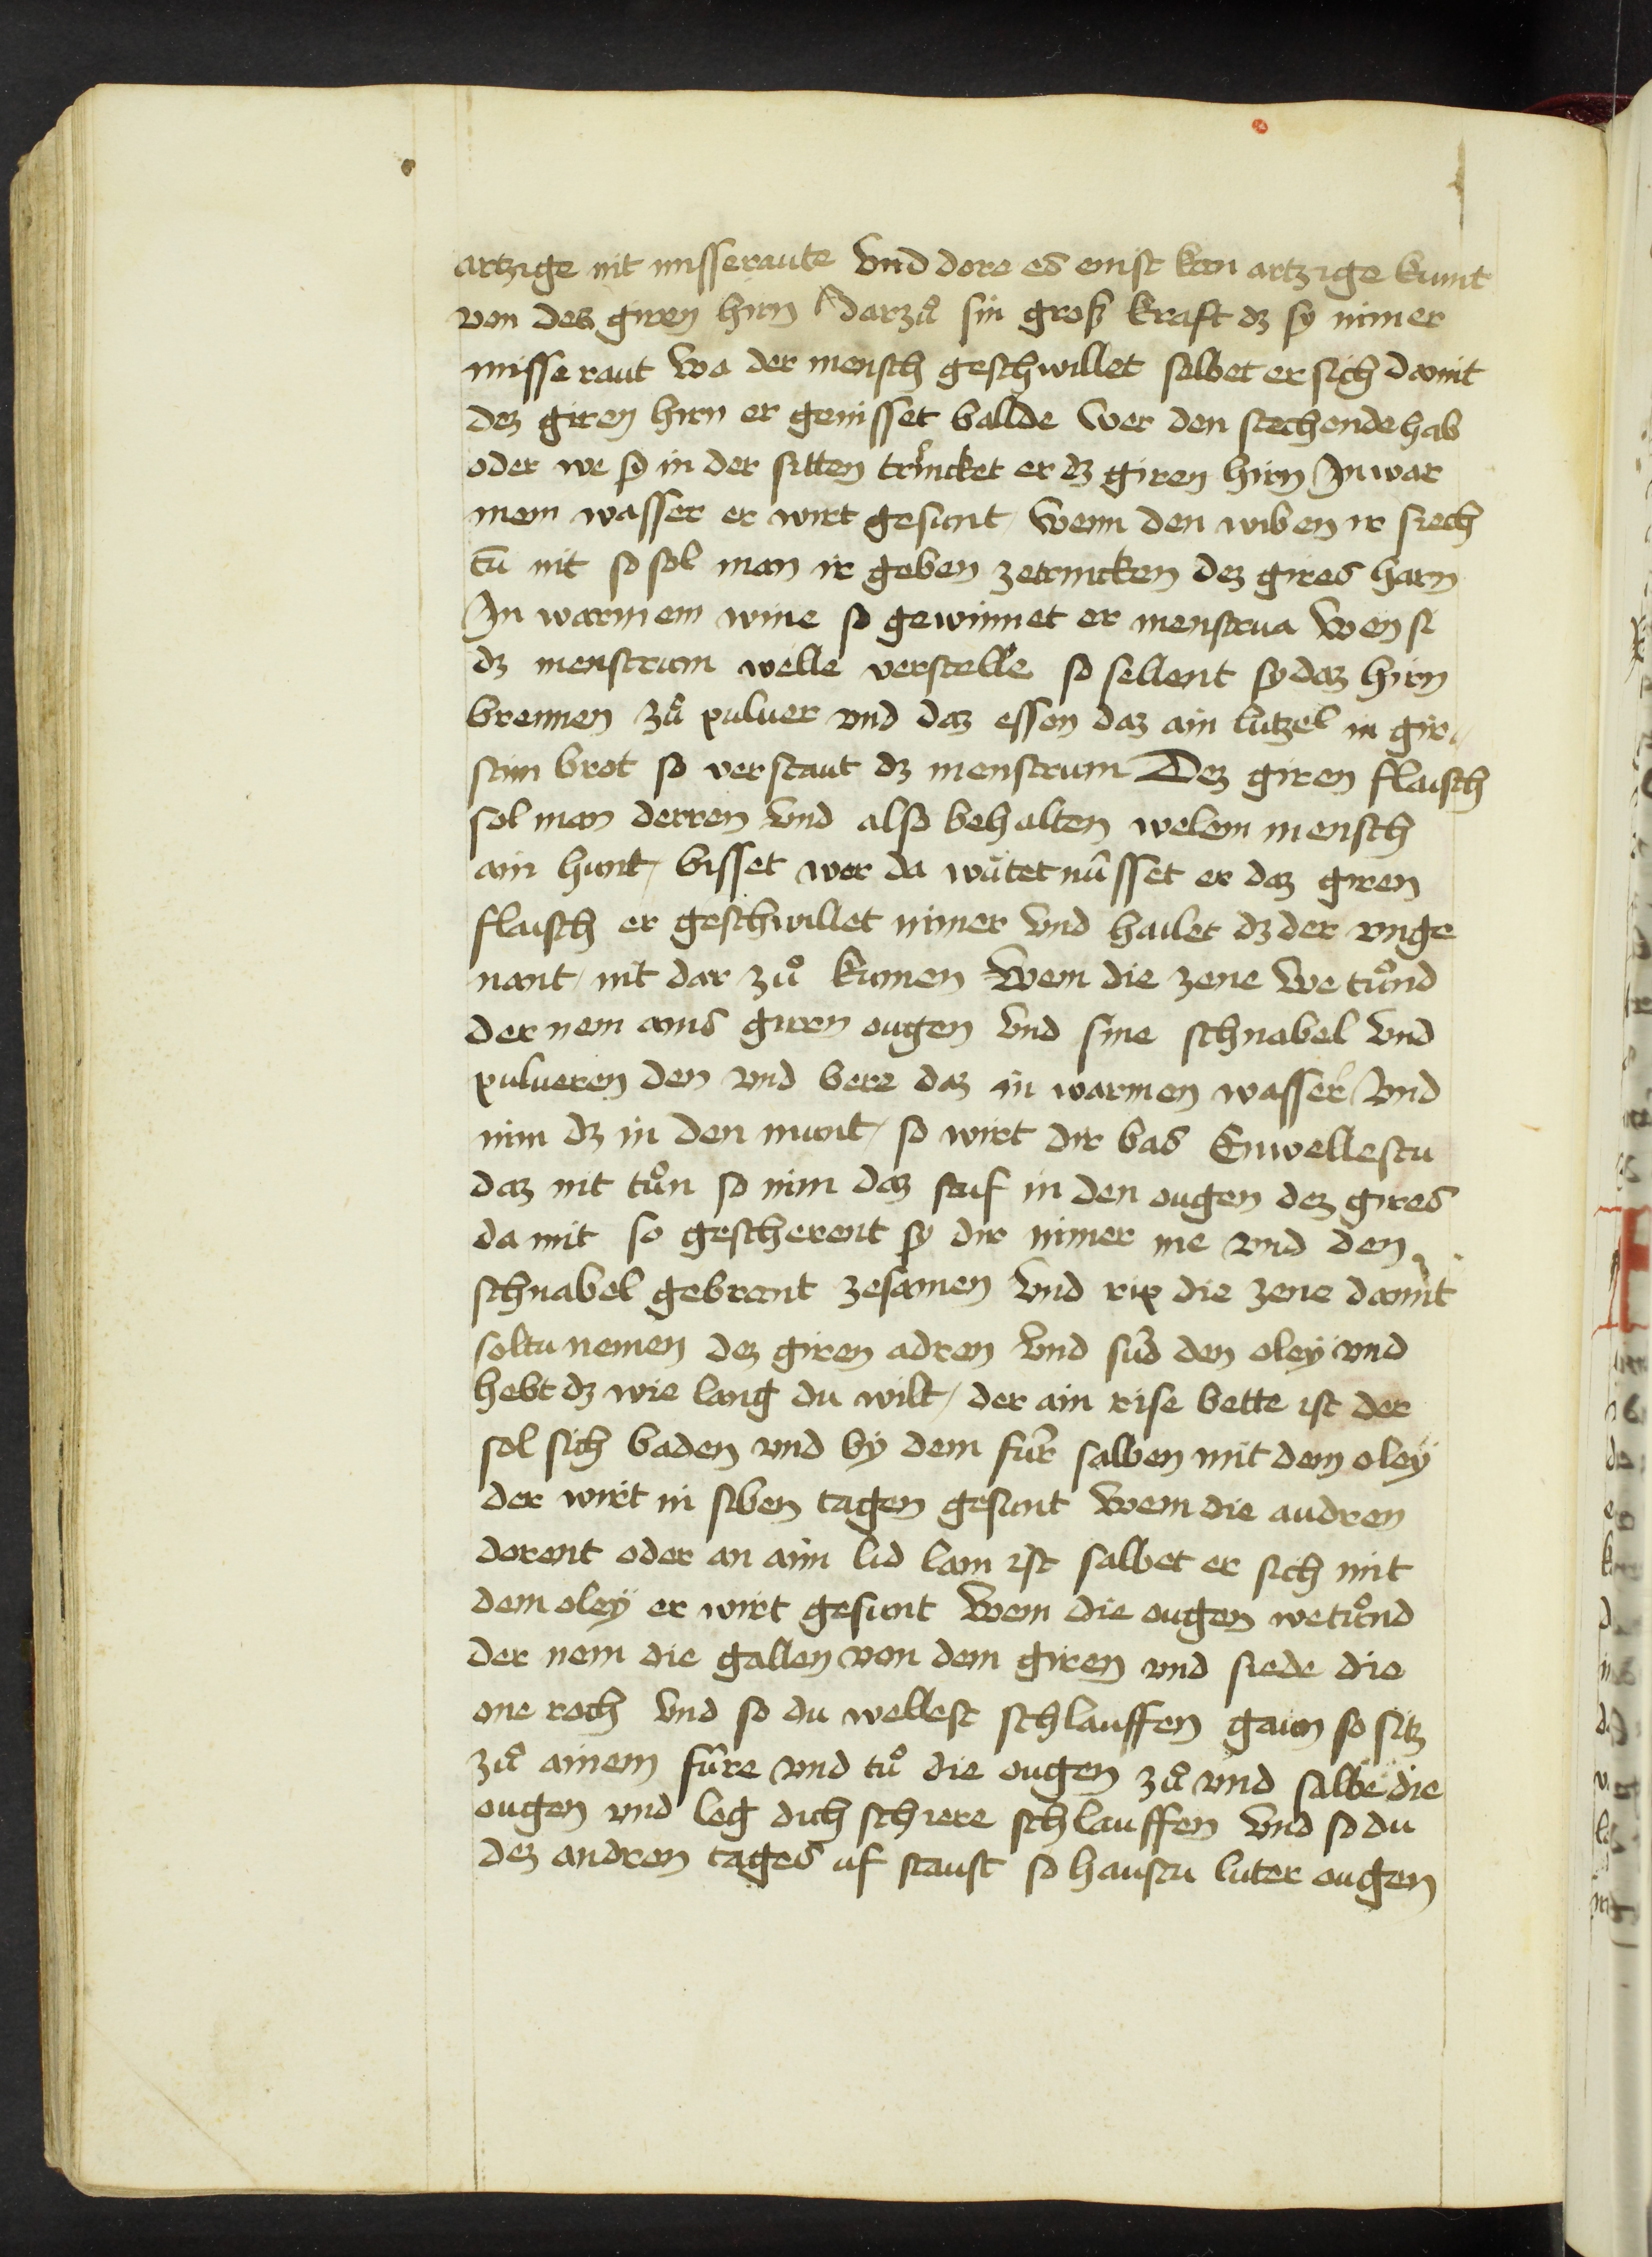 artzige nit misseraute vnd dore es enist kan artzige kumt
von des giren hirn darzů sin groß kraft dz sy nimer
misse raut wa der mensch geschwillet salbet er sich damit
dez giren hirn er genisset ballde wer den stechende hab
oder we sy in der sitten trincket er dz giren hirn In war
mem wasser er wirt gesunt / wenn den wiben ir siech
tū nit so sol man ir geben zetrincken dez gires harn
In warmem wine so gewinnet er menstrua wen si
dz menstrum welle verstelle so sellent sy daz hirn
brennen zů puluer vnd daz essen daz ain lutzel in gir
stim brot so verstaut dz menstrum Dez giren flaisch
sol man derren vnd also behalten welem mensch
ain hunt / bisset wer da wůtet nůsset er daz giren
flaisch er geschwillet nimer vnd hailet dz der vnge
nant / nit dar zů kumen wem die zene we tůnd
der nem ains giren ougen vnd sine schnabel vnd
pulueren den vnd bere daz in warmen wasser vnd
nim dz in den munt / so wirt dir bas Enwellestu
daz nit tůn so nim daz saif in den ougen dez gires
da mit so gescherent sy dir nimer me vnd den
schnabel gebrant zesamen vnd rip die zene damit
soltu nemen dez giren adren vnd sůd den oleÿ vnd
hebt dz wie lang du wilt / der ain rise bette ist der
sol sich baden vnd bÿ dem fůr salben mit dem oleÿ
der wirt in siben tagen gesunt wem die audren
dorent oder an aim lid lam ist salbet er sich mit
dem oleÿ er wirt gesunt wem die ougen we tůnd
der nem die gallen von dem giren vnd siede die
one roch vnd so du wellest schlauffen gaun so sitz
zů ainem fůre vnd tů die ougen zů vnd salbe die
ougen vnd leg dich schiere schlauffen vnd so du
dez andren tages uf staust so haustu luter ougen